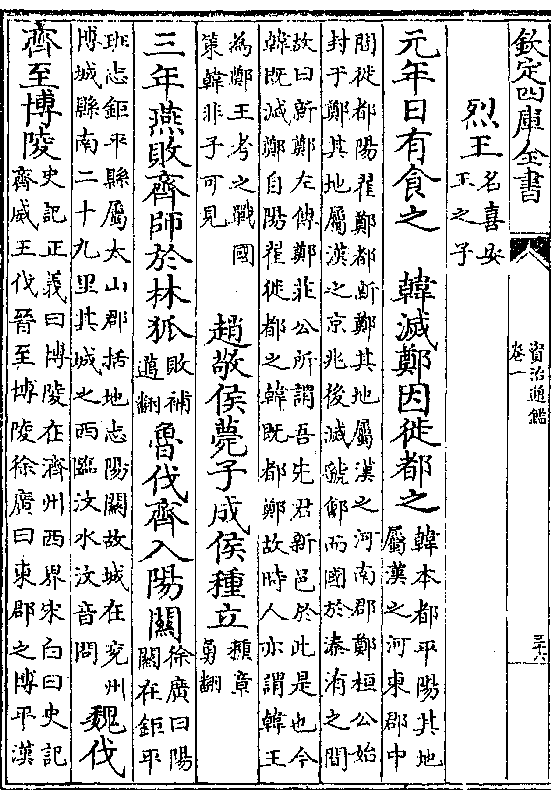 欽定四庫全書
資治通鑑
卷一
三十六
烈王名喜安
王之子
元年日有食之 韓滅鄭因徙都之韓本都平陽其地
屬漢之河東郡中
間徙都陽翟鄭都新鄭其地屬漢之河南郡鄭桓公始
封于鄭其地屬漢之京兆後滅虢鄶而國於溱洧之間
故曰新鄭左傳鄭莊公所謂吾先君新邑於此是也今
韓既滅鄭自陽翟徙都之韓既都鄭故時人亦謂韓王
為鄭王考之戰國
策韓非子可見
趙敬侯薨子成侯種立種章
勇翻
三年燕敗齊師於林狐敗補
邁翻
魯伐齊入陽關徐廣曰陽
關在鉅平
班志鉅平縣屬太山郡括地志陽關故城在兖州
博城縣南二十九里其城之西臨汶水汶音問
魏伐
齊至博陵史記正義曰博陵在濟州西界宋白曰史記
齊威王伐晉至博陵徐廣曰東郡之博平漢